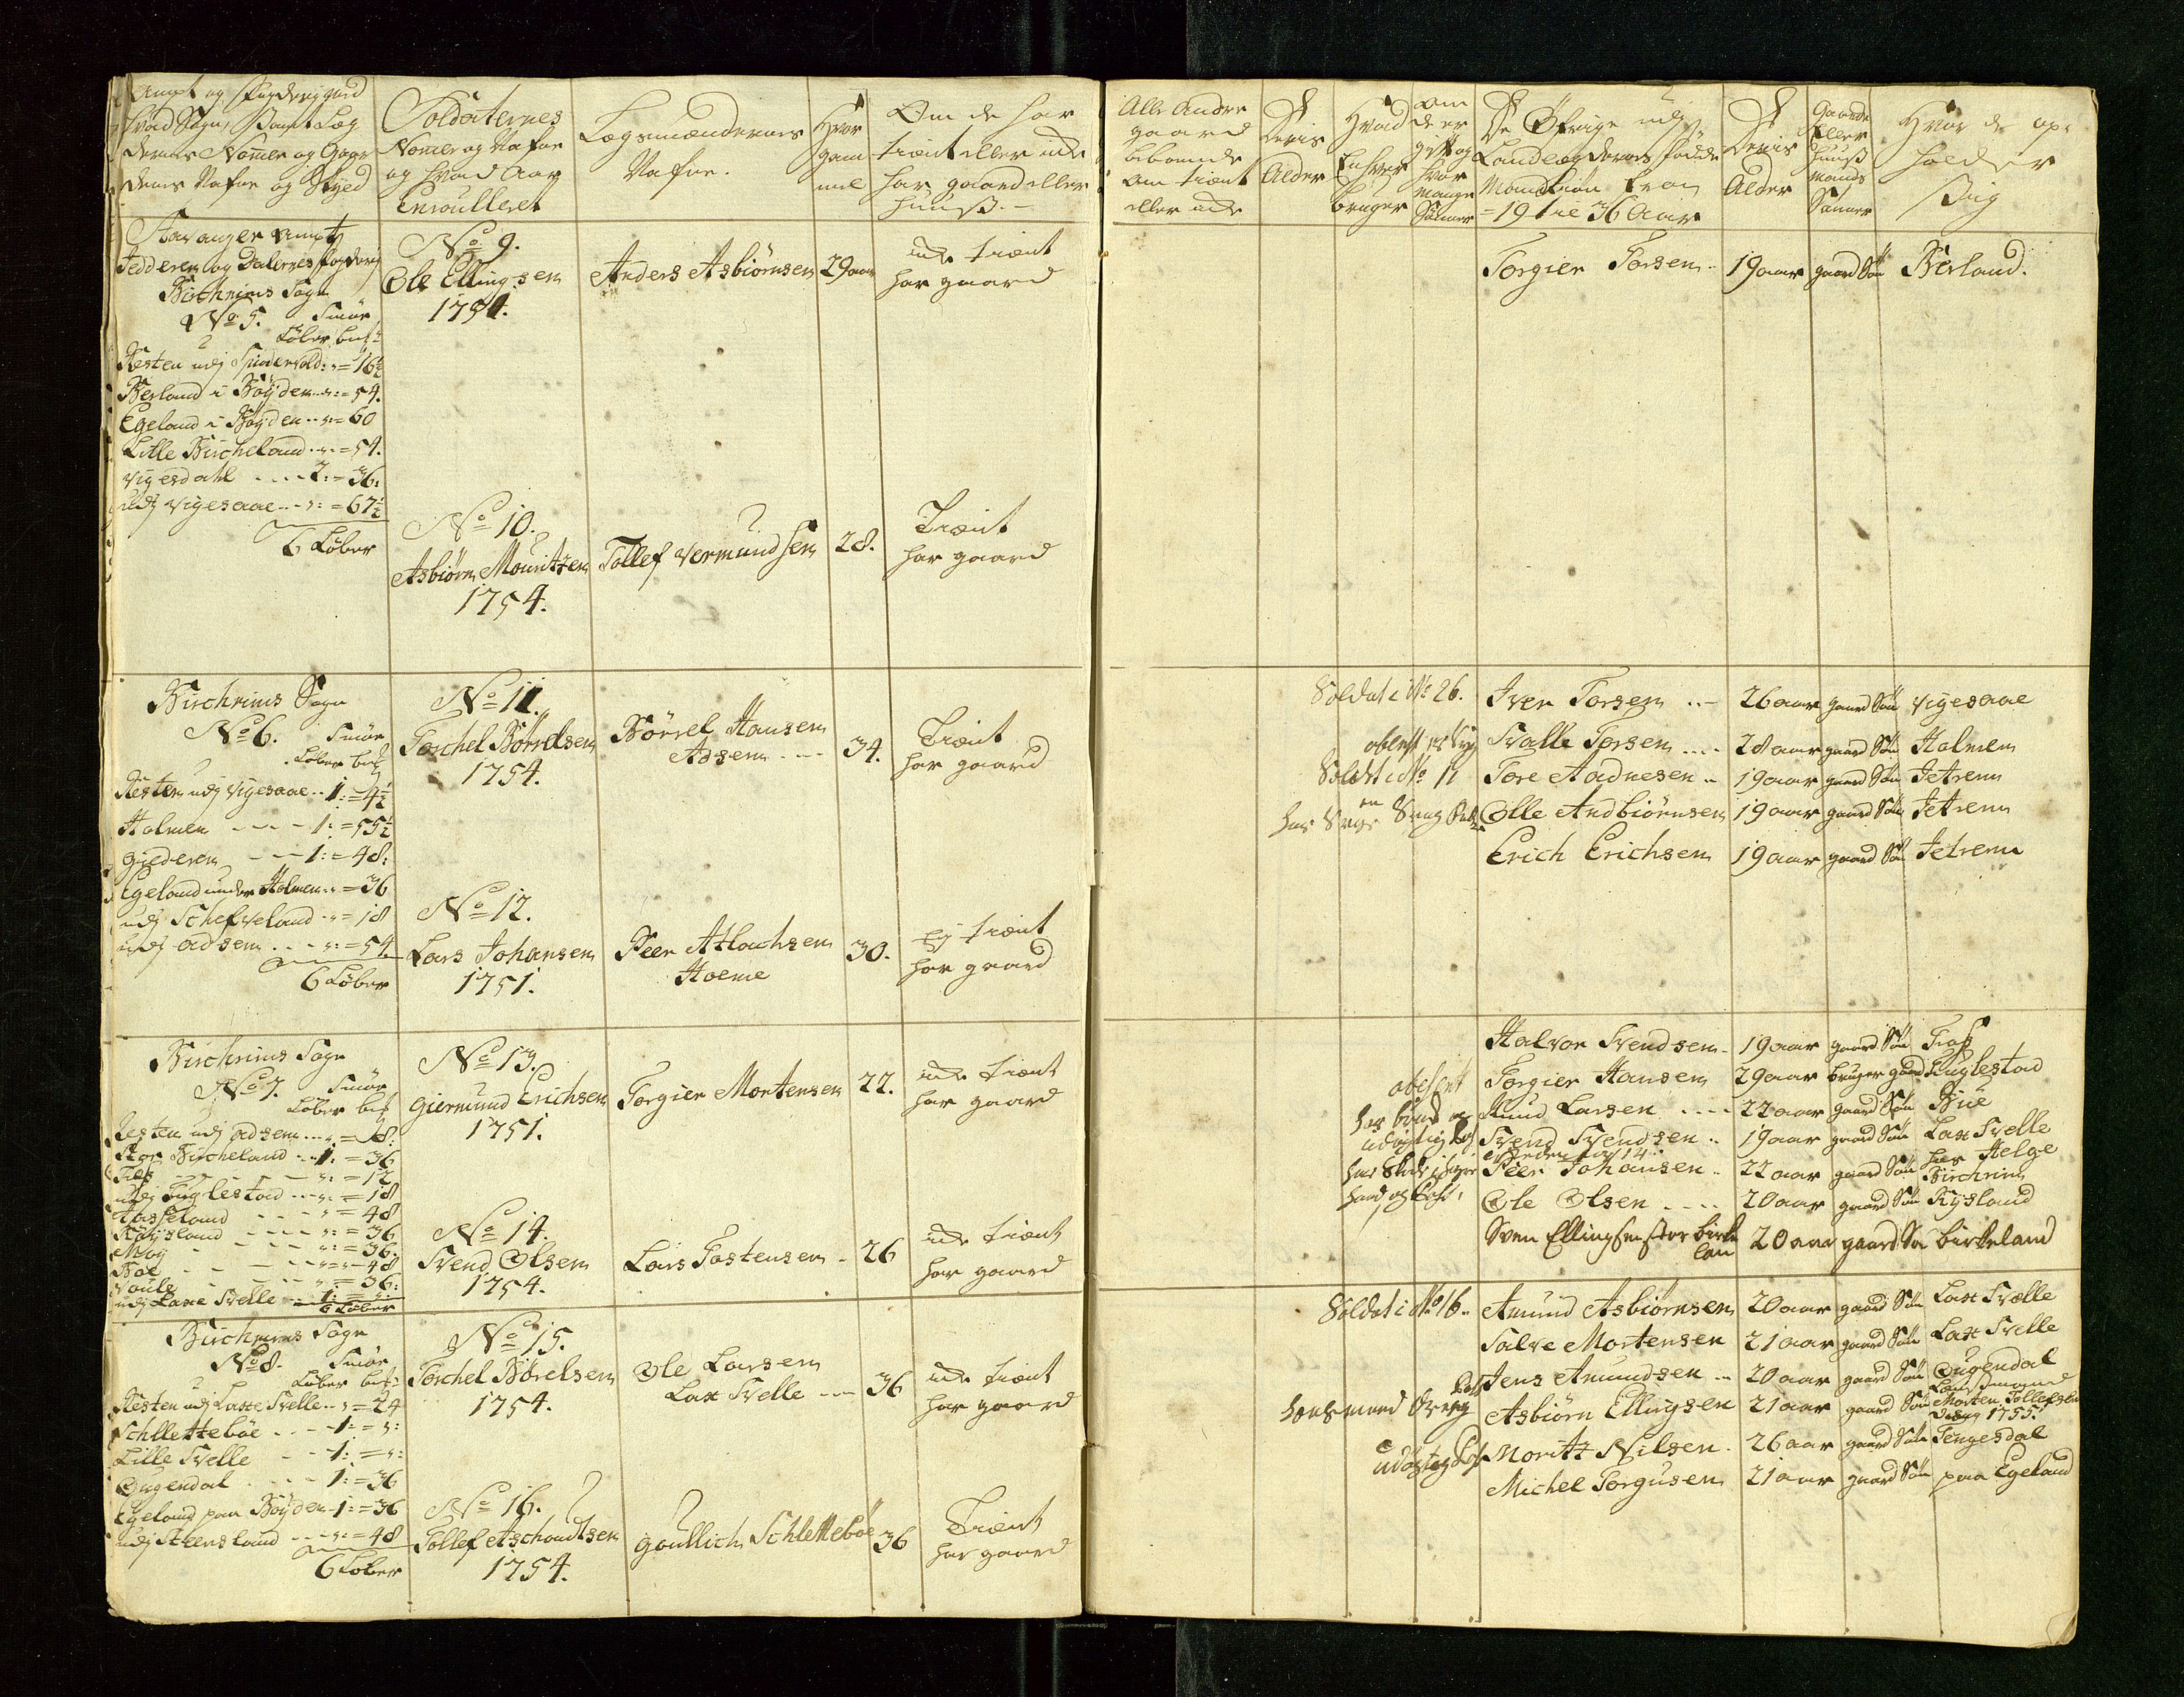 Ampt og Fogderj samt
hvad Sogn, Samt Læg
dernes Nomer og Gaar
dens Nafne og Skyld
Soldaternes
Nomer og Nafne
og hvad Aar
Enroulleret
Lægsmændernes
Nafne.
Hvor
gam
mel
Om de har
tient eller icke
har gaard eller
huus.-
Alle Andre
gaard
beboende
om tient
eller icke
Deris
Alder
Hvad
Enhver
bruger
om
de er
gift og
hvor
mange
Sönner
De Öfrige udj
Landlægdernes födde
Mandkiön fra
19 til 36 Aar
Deris
Alder
Gaards
Eller
huus
mands
Sönner
Hvor de op-
holder
Sig
Stavanger Ampt
Jedderen og Dalernes fogderj
Birchrims Sogn
No 5. Smör
Löber bus
Resten udj Spiodevold = 16½
Berland i Böyden = 54.
Egeland i Böyden = 60
Litle Bircheland = 54.
Vigesdahl 2: = 36:
udj Vigesaae = 67½
6 Löber
No 9.
Ole Ellingsen
1754.
Anders Asbiörnsen
29 aar
icke tient
har gaard
Torgier Torsen
19 aar
gaard Sön
Berland.
No 10.
Asbiörn Mouritzen
1754.
Tollef Vermundsen
28.
Tient
har gaard
Birchrims Sogn
No 6. Smör
Löber bus
Resten udj Vigesaae 1: = 4½
Holmen 1: = 55½
giederem 1: = 48:
Egeland under Holmen = 36
udj Schefveland = 18
udj Adsem = 54
6 Löber
No 11.
Torchel Börrelsen
1754.
Börrel Hansen
Adsem
34.
Tient
har gaard
Soldat i No 26.
Iver Torsen
26 aar gaard Sön Vigesaae
Salle Torsen
28 aar gaard Sön Holmen
Soldat i No 11
Tore Aadnesen
19 aar gaard Sön Jetrem
Olle Andbiörnsen
19 aar gaard Sön Jetrem
Erich Erichsen
19 aar gaard Sön Jetrem
No 12.
Lars Johansen
1751.
Peer Atlachsen
Hoeme
30.
Ej tient
har gaard
Birchrims Sogn
No 7. Smör
Löber bus
Resten udj Adsem = 18:
Stor Bircheland 1: = 36
= 12
udj Fuglestad = 18
Aasseland = 48
Röysland = 36
Moy = 36.
Böe = 48
= 36:
udj Laxe Svelle 1: =
6 Löber
No 13.
Giermund Erichsen
1751.
Torgier Mortensen
22.
icke tient
har gaard
Halvor Svendsen
19 aar gaard Sön
absent
Torgier Hansen
29 aar bruger gaard Fuglestad
Knud Larsen
22 aar gaard Sön Bue
Svend Svendsen
19 aar gaard Sön Lax Svelle
Peer Johansen
22 aar gaard Sön
hos Helge
Birchrim
Ole Olsen
20 aar gaard Sön Rysland
Sven Ellingsen stor birke
lan
20 aar gaard Sön birkeland
No 14.
Svend Olsen
1754.
Lars Tostensen
26
icke tient
har gaard
Birchrims Sogn
No 8. Smör
Löber bus
Resten udj Laxe Svelle = 24
Schletteböe 1: =
Lille Svelle 1: =
Ougendal 1: = 36
Egeland paa Böyden 1: = 36
= 48
6 Löber
No 15.
Torchel Börelsen
1754.
Ole Larsen
Lax Svelle
36
icke tient
har gaard
Soldat i No 16
Amund Asbiörnsen
20 aar gaard Sön Lax Svelle
Salve Mortensen
21 aar gaard Sön Lax Svelle
Jens Amundsen
20 aar gaard Sön Ougendal
Asbiörn Ellingsen
21 aar gaard Sön
Morten Tollefsen
1755.
Moritz Nilsen
26 aar gaard Sön Tengesdal
Michel Torgusen
21 aar gaard Sön paa Egeland
No 16.
Tollef Aschoudtsen
1754.
Goullich Schletteböe
36
Tient
har gaard